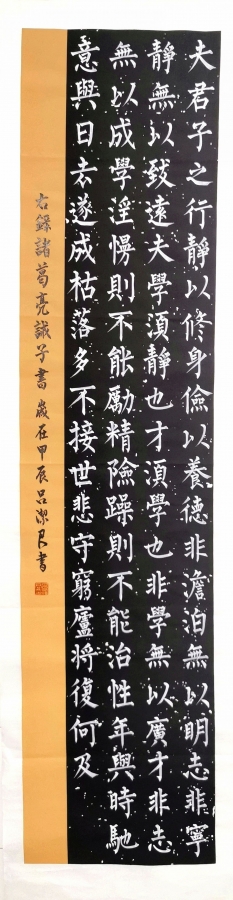 夫君子之行靜以修身儉以養德非澹泊無以明志非寧
靜無以致遠夫學須靜也才須學也非學無以廣才非志
無以成學淫慢則不能勵精險躁則不能治性年與時馳
意與日去遂成枯落多不接世悲守窮廬將復何及
右錄諸葛亮誡子書歲在甲辰呂潔良書